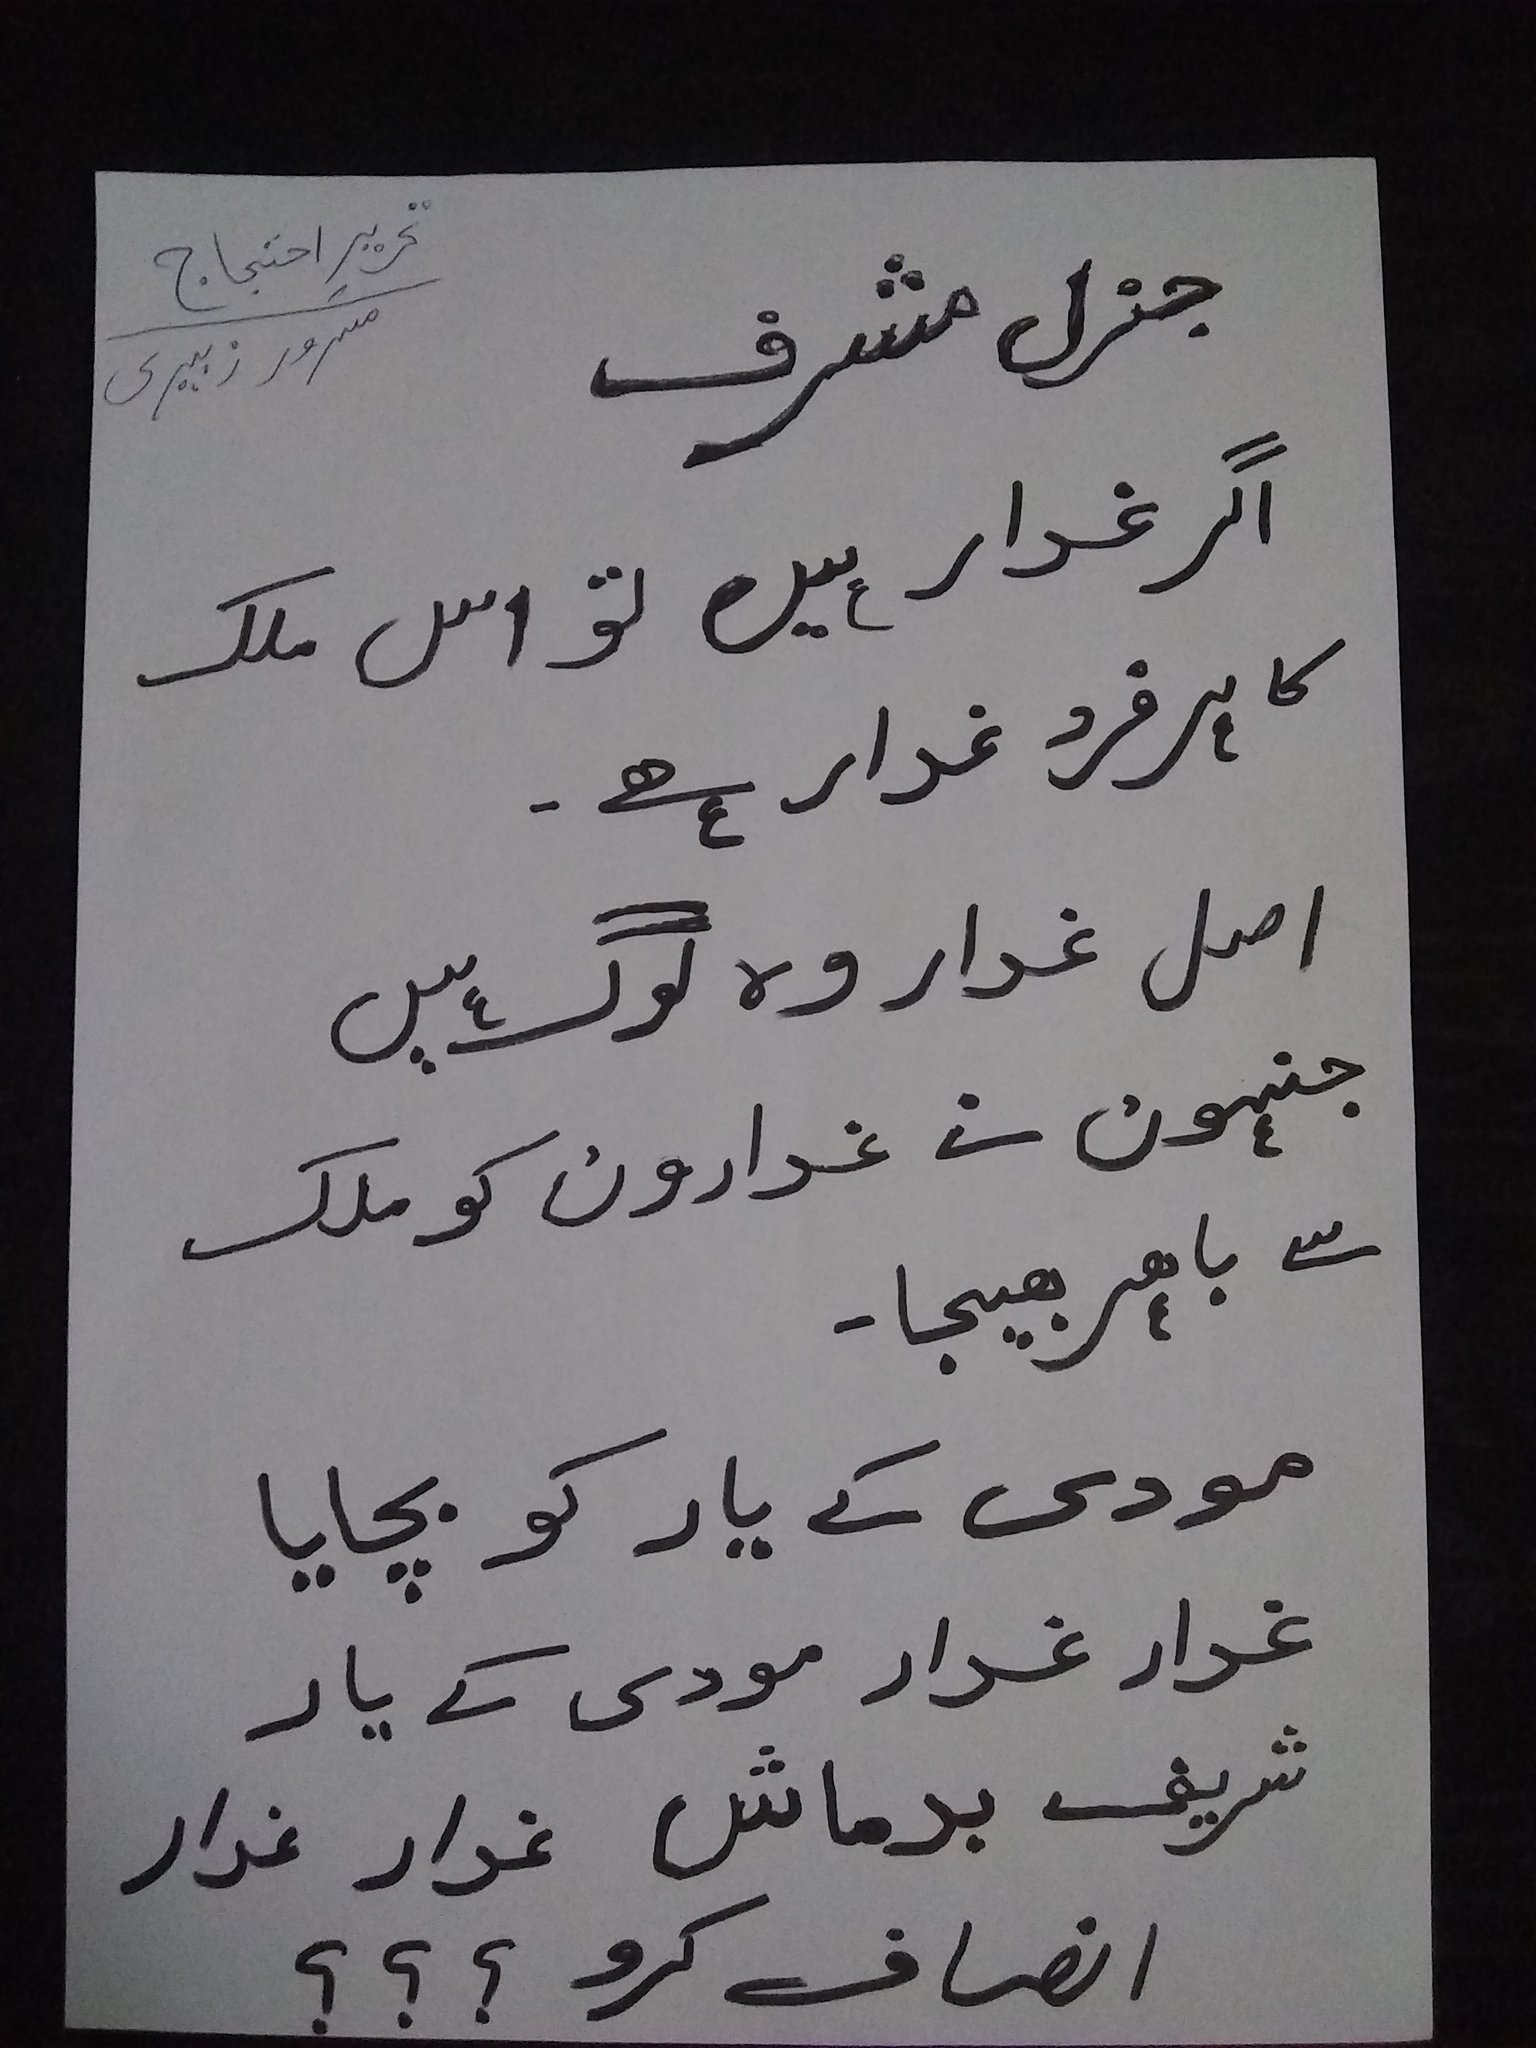 تحریرِ احتجاج
مسرور زبیری
جنرل مشرف
اگر غدار ہیں تو اس ملک
کا ہر فرد غدار ہے ۔
اصل غدار وہ لوگ ہیں
جنہون نے غدارون کو ملک
سے باہر بھیجا ۔
مودی کے یار کو بچایا
غدار غدار مودی کے یار
شریف بدماش غدار غدار
انصاف کرو ؟ ؟ ؟